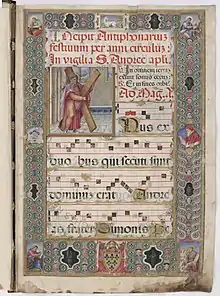 Incipit Antiphonarium
festiuum per anni circulum:
In vigilia S. Andree apli.
In omnem terram
Ad Mag. a.
Vnus ex
duobus qui secuti sunt
dominum erat Andre
as frater Simonis Pe